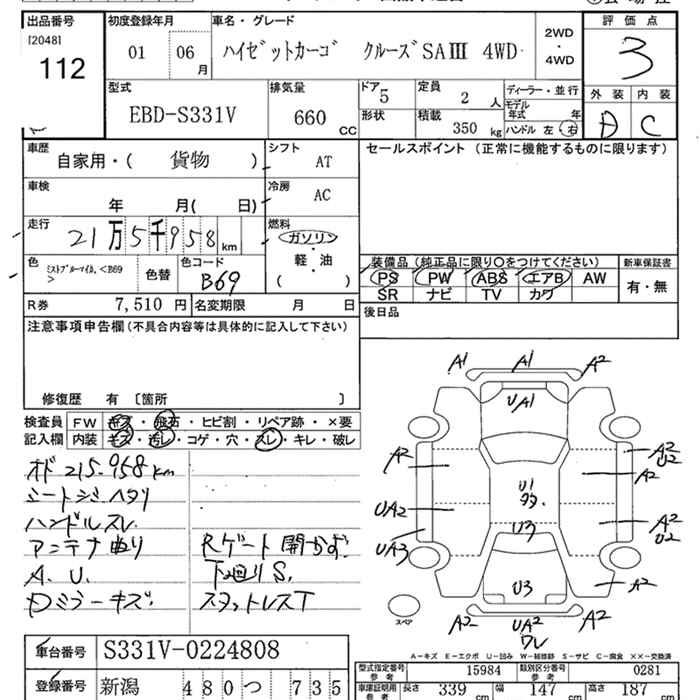 出品番号
[2048]
112
初度登録年月
01 06 月
車名・グレード
ハイゼットカーゴ クルーズSAⅢ 4WD
2WD
・
4WD
評価点
3
外装 内装
D C
型式
EBD-S331V
排気量
660 CC
ドア 5
形状
定員 2 人
積載 350 kg
ディーラー・並行
モデル
年式 年
ハンドル 左・右
車歴
自家用・( 貨物 )
シフト
AT
車検
年 月( 日)
冷房
AC
走行
21万5千958 km
燃料
ガソリン
・
軽・油
( )
色
ミストブルーマイカM,<B69
>
色替
色コード
B69
R券 7,510 円
名変期限 月 日
セールスポイント (正常に機能するものに限ります)
装備品(純正品に限り○をつけてください)
PS PW ABS エアB AW
SR ナビ TV カワ
新車保証書
有・無
後日品
注意事項申告欄(不具合内容等は具体的に記入して下さい)
修復歴 有 〔箇所 〕
検査員
記入欄
FW キズ・飛石・ヒビ割・リペア跡・×要
内装 キズ・汚レ・コゲ・穴・スレ・キレ・破レ
オド 215.958km
シートシミ ヘタリ
ハンドルスレ
アンテナ曲り
A. U.
Dミラーキズ
Rゲート開かず
下廻りS.
スタットレスT
A1 A1 A2
UA1
A2 A2 U2
A2
UA2 U1 A2 U2
UA3 U3
U3 A2
A2 UA2 A2
スペア
A-キズ E-エクボ U-凹み W-補修跡 S-サビ C-腐食 ××-交換済
車台番号 S331V-0224808
登録番号 新潟 480つ 735
型式指定番号
参考
15984
類別区分番号
参考
0281
車庫証明用
参考
長さ 339 cm 幅 147 cm 高さ 187 cm